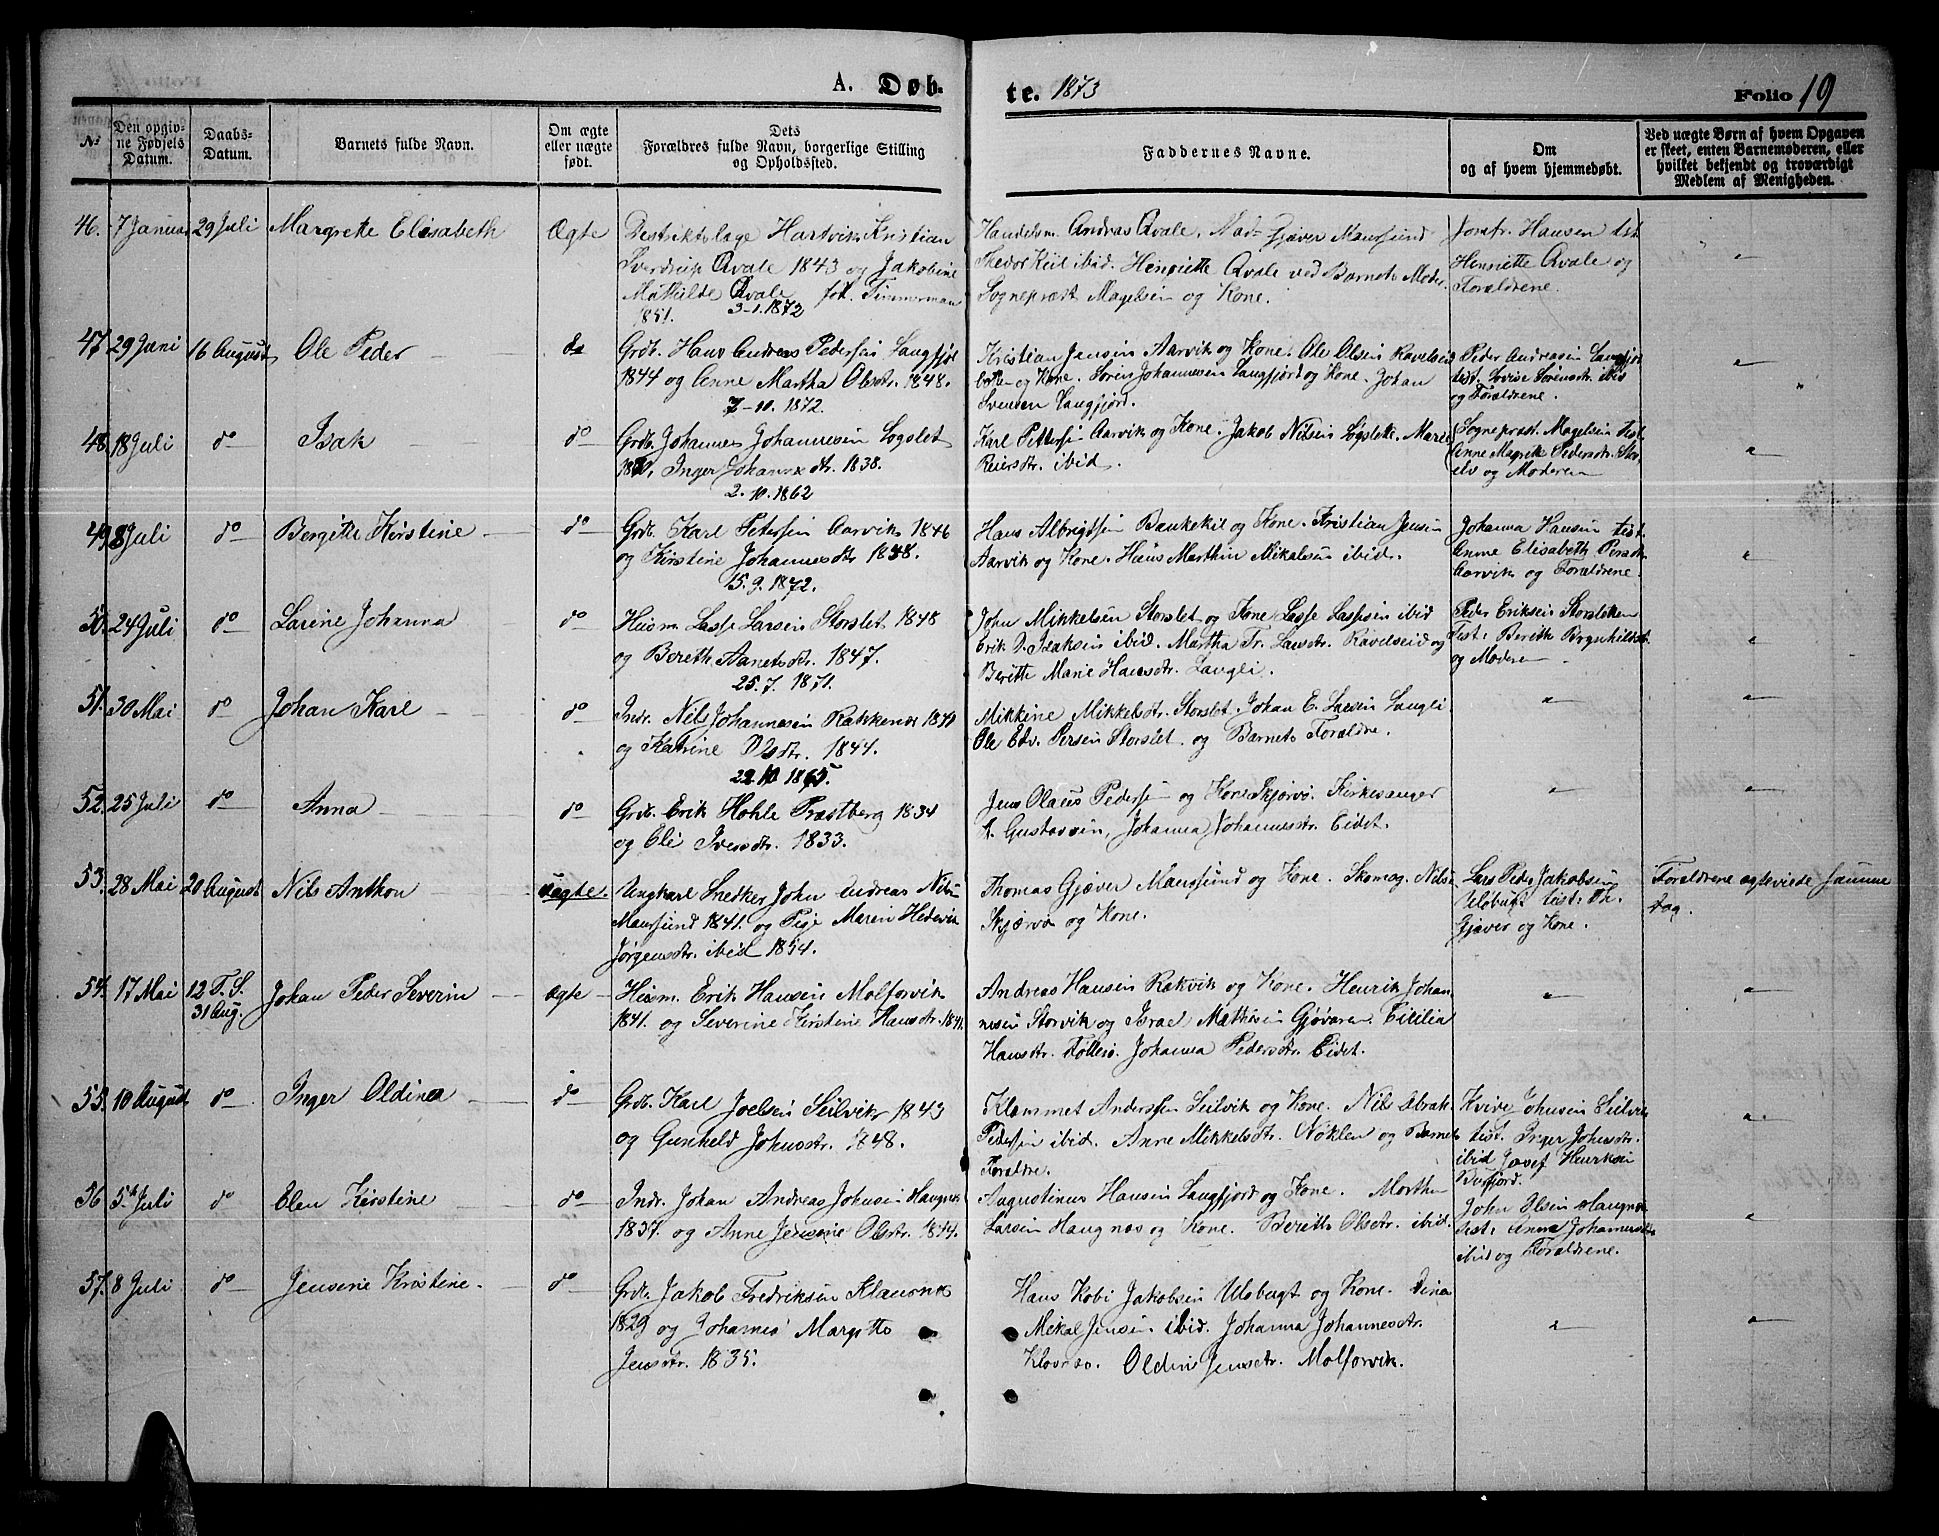 A. Døb- te. 1873 Folio 19
No
Den opgiv-
ne Fødsels
Datum.
Daabs-
Datum.
Barnets fulde Navn.
Om ægte
eller uægte
født.
Dets
Forældres fulde Navn, borgerlige Stilling
og Opholdssted.
Faddernes Navne.
Om
og af hvem hjemmedøbt.
Ved uægte Børn af hvem Opgaven
er skeet, enten Barnemoderen, eller
hvilket bekjendt og troværdigt
Medlem af Menigheden.
46. 7 Januar 29 Juli Margrethe Elisabeth Ægte
Destriktslæge Hartvik Kristian
Sverdrup Qvale 1843 og Jakobine
Mathilde Qvale fød. Timmerman
1851. 3-1.1872
Handelsm. Andreas Qvale. Mad. Gjæver Maursund
Thedor Kiil ibid. Henriette Qvale ved Barnets Moder
Sognepræst Magelsen og Kone.
Jomfr. Hansen tst.
Henriette Qvale og
Forældrene.
47. 29 Juni 16 August Ole Peder do
Grdb. Hans Andreas Pedersen Langfjor
1844 og Anne Martha Olsdtr. 1848.
7-10. 1872.
Kristian Jensen Aarvik og Kone. Ole Olsen Ravelseid
og Kone. Sören Johannesen Langfjord og Kone. Johan
Svendsen Langfjord.
Peder Andreasen Langfjor
test. Lovise Sörensdtr. ibid
og Forældrene.
48. 18 Juli do Isak do
Grdb. Johannes Johannesen Sogslet
Inger Johansdtr. 1838.
2. 10. 1862
Karl Pettersen Aarvik og Kone. Jakob Nilsen Sogslett. Marie
Reiersdtr. ibid.
Sognepræst. Magelsen test.
Anne Magrete Pedersdtr. Stor
elv og Moderen
49. 8 Juli do Bergitte Kirstine do
Grdb. Karl Petersen Aarvik 1846
og Kirstine Johannesdtr 1848.
15. 9. 1872.
Hans Albrigtsen Baukekil og Kone. Kristian Jensen
Aarvik og Kone. Hans Marthin Mikalsen ibid.
Johanna Hansen test.
Anne Elisabeth Persdtr.
Aarvik og Forældrene.
50. 24 Juli do Larine Johanna do
Husm. Lasse Larsen Storslet 1848
og Bereth Aanetsdtr. 1847.
25. 7. 1871.
John Mikkelsen Storslet og Kone Lasse Lassesen ibid
Erik D. Isaksen ibid. Martha Fr. Larsdtr. Ravelseid og
Beritte Marie Hansdtr. Langli.
Peder Eriksen Storsleten
Test: Berith Brynhildsdt.
og Moderen
51. 30 Mai do Johan Karl do
Indr. Nils Johannesen Rakkenes 1840
og Katrine Olsdtr. 1844.
22 10 1865
Mikkine Mikkelsdtr. Storslet. Johan E. Larsen Langli
Ole Edv. Persen Storslet. og Barnets Forældre.
52. 25 Juli do Anna do
Grdb. Erik Hohle Præstberg 1834
og Eli Iversdtr. 1833.
Jens Olaus Pedersen og Kone Skjervö. Kirkesanger
A. Gustavsen, Johanna Johannesdtr. Eidet.
53. 28 Mai 20 August Nils Anthon Uægte.
Ungkarl Snedker John Andreas Nilsen
Maursund 1841. og Pige Maren Hedevik
Jörgensdtr. ibid 1854.
Thomas Gjæver Maursund og Kone. Skomag. Nilsen
Skjærvö og Kone.
Lars Peder Jakobsen
Uløbugt test: Th.
Gjæver og Kone.
Forældrene ægteviede samme
Dag.
54. 17 Mai 12 S. T.
31 Aug. Johan Peder Severin Ægte
Husm. Erik Hansen Molforvik
1841. og Severine Kirstine Hansdtr. 1841.
Andreas Hansen Rakvik og Kone. Henrik Johan-
nesen Storvik og Israel Mathisen Gjövaren. Cicilia
Hansdtr. Follesö. Johanna Pedersdtr. Eidet.
55. 10 August do Inger Oldinea do
Grdb. Karl Joelsen Seilvik 1843
og Gunheld Johnsdtr. 1848.
Klemmet Anderssen Seilvik og Kone. Nils Abrah.
Pedersen ibid. Anne Mikkelsdtr. Nöklen og Barnets
Forældre.
Kvive Johnsen Seilvik
test. Inger Johnsdtr.
ibid Josef Henriksen
Burfjord.
56 5te Juli do Elen Kirstine do
Indr. Johan Andreas Johnsen Haugnes
1837 og Anne Jensine Olsdtr. 1844.
Augustinus Hansen Langfjord og Kone. Morthen
Larsen Haugnæs og Kone. Berith Olsdtr. ibid.
John Olsen Haugnes
test: Anna Johannesdtr.
ibid og Forældrene.
57. 8 Juli do Jensine Kristine. do
Grdb. Jakob Fredriksen Klauvnes
1829 og Johannes Margitte
Jensdtr. 1835.
Hans Kobi Jakobsen Uløbugt og Kone. Dina
Mekal Jensen ibid. Johanna Johannesdtr.
Oldin Jensdtr. Molforvik.